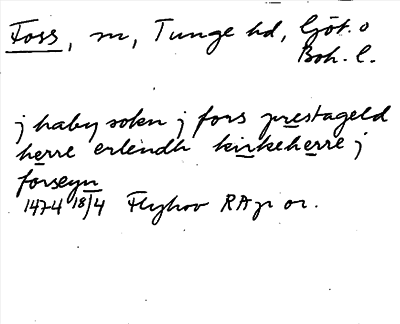 Foss, sn, Tunge hd, Göt. o
Boh. l.
j haby sokn j fors prestageld
herre erlendh kirkeherre j
forseyn
1474 18/4 Flyhov RAp or.